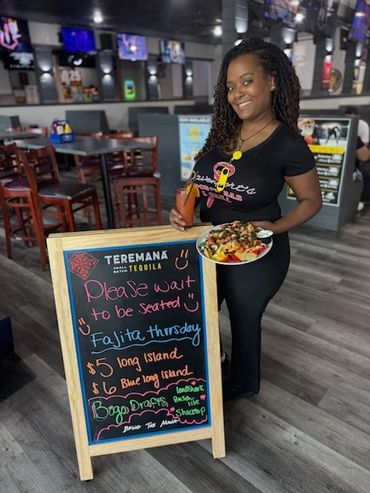 TEREMANA
SMALL BATCH TEQUILA
Please wait
to be seated
Fajita thursday
$5 long Island
$6 Blue long island
Bogo Drafts
landshark
Busch
lite
Shocktop
Bring The Mana